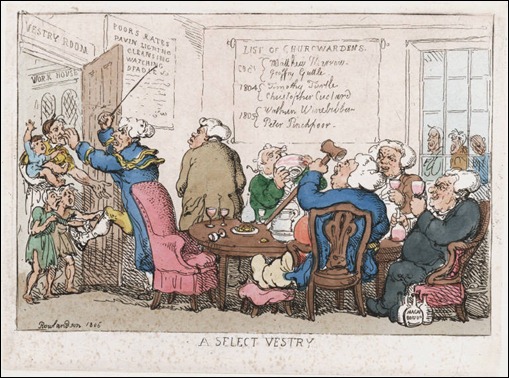 VESTRY ROOM
WORK HOUSE
POORS RATES
PAVIN LIGHTNG
CLEANSING
WATCHING
SPADIE
LIST OF CHURCWARDENS.
1803 { Matthew Marrow.
Geoffry Guttle
1804 { Timothy Turtle
Christopher Custard
1805 { Wathan Winebibber
Peter Pinchpoor.
Rowlandson 1806
A SELECT VESTRY